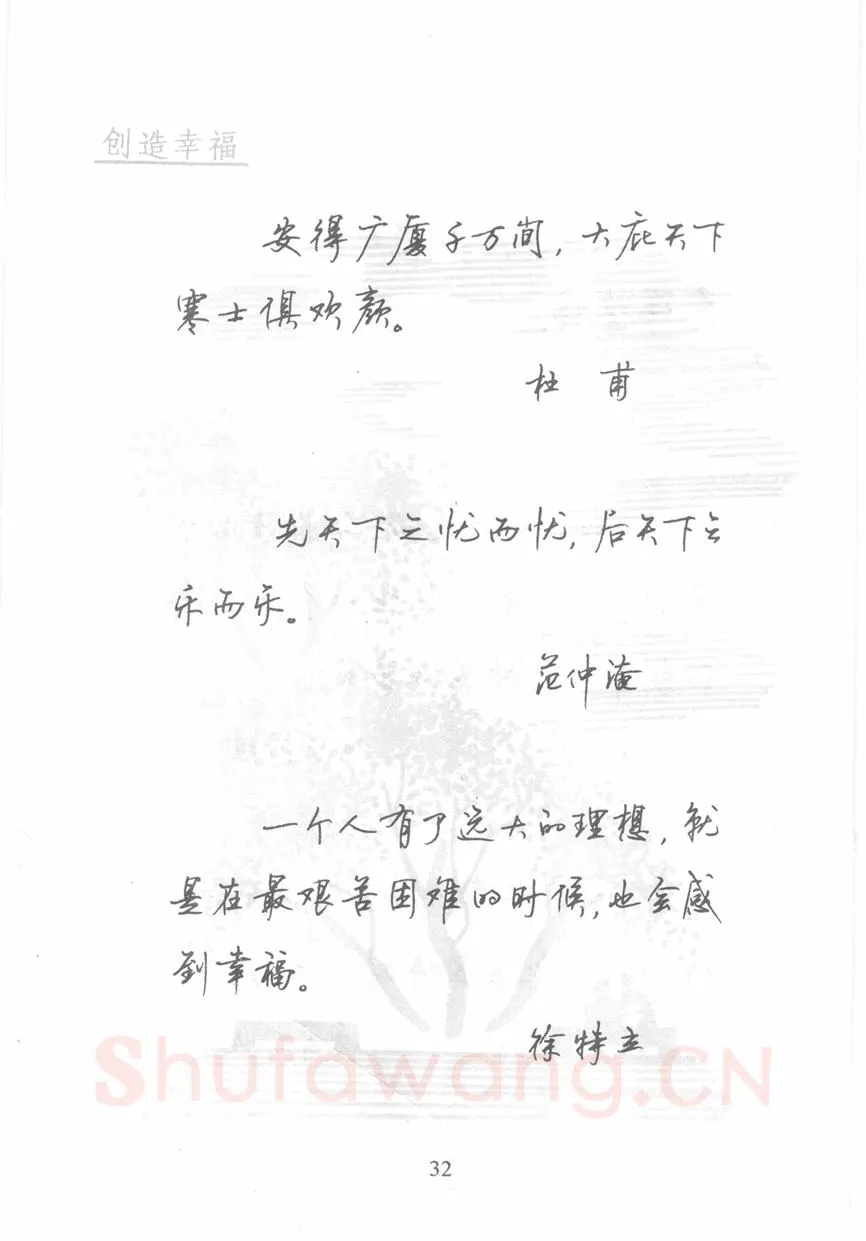 创造幸福
安得广厦千万间，大庇天下
寒士俱欢颜。
杜 甫
先天下之忧而忧，后天下之
乐而乐。
范仲淹
一个人有了远大的理想，就
是在最艰苦困难的时候，也会感
到幸福。
徐特立
Shufawang.CN
32